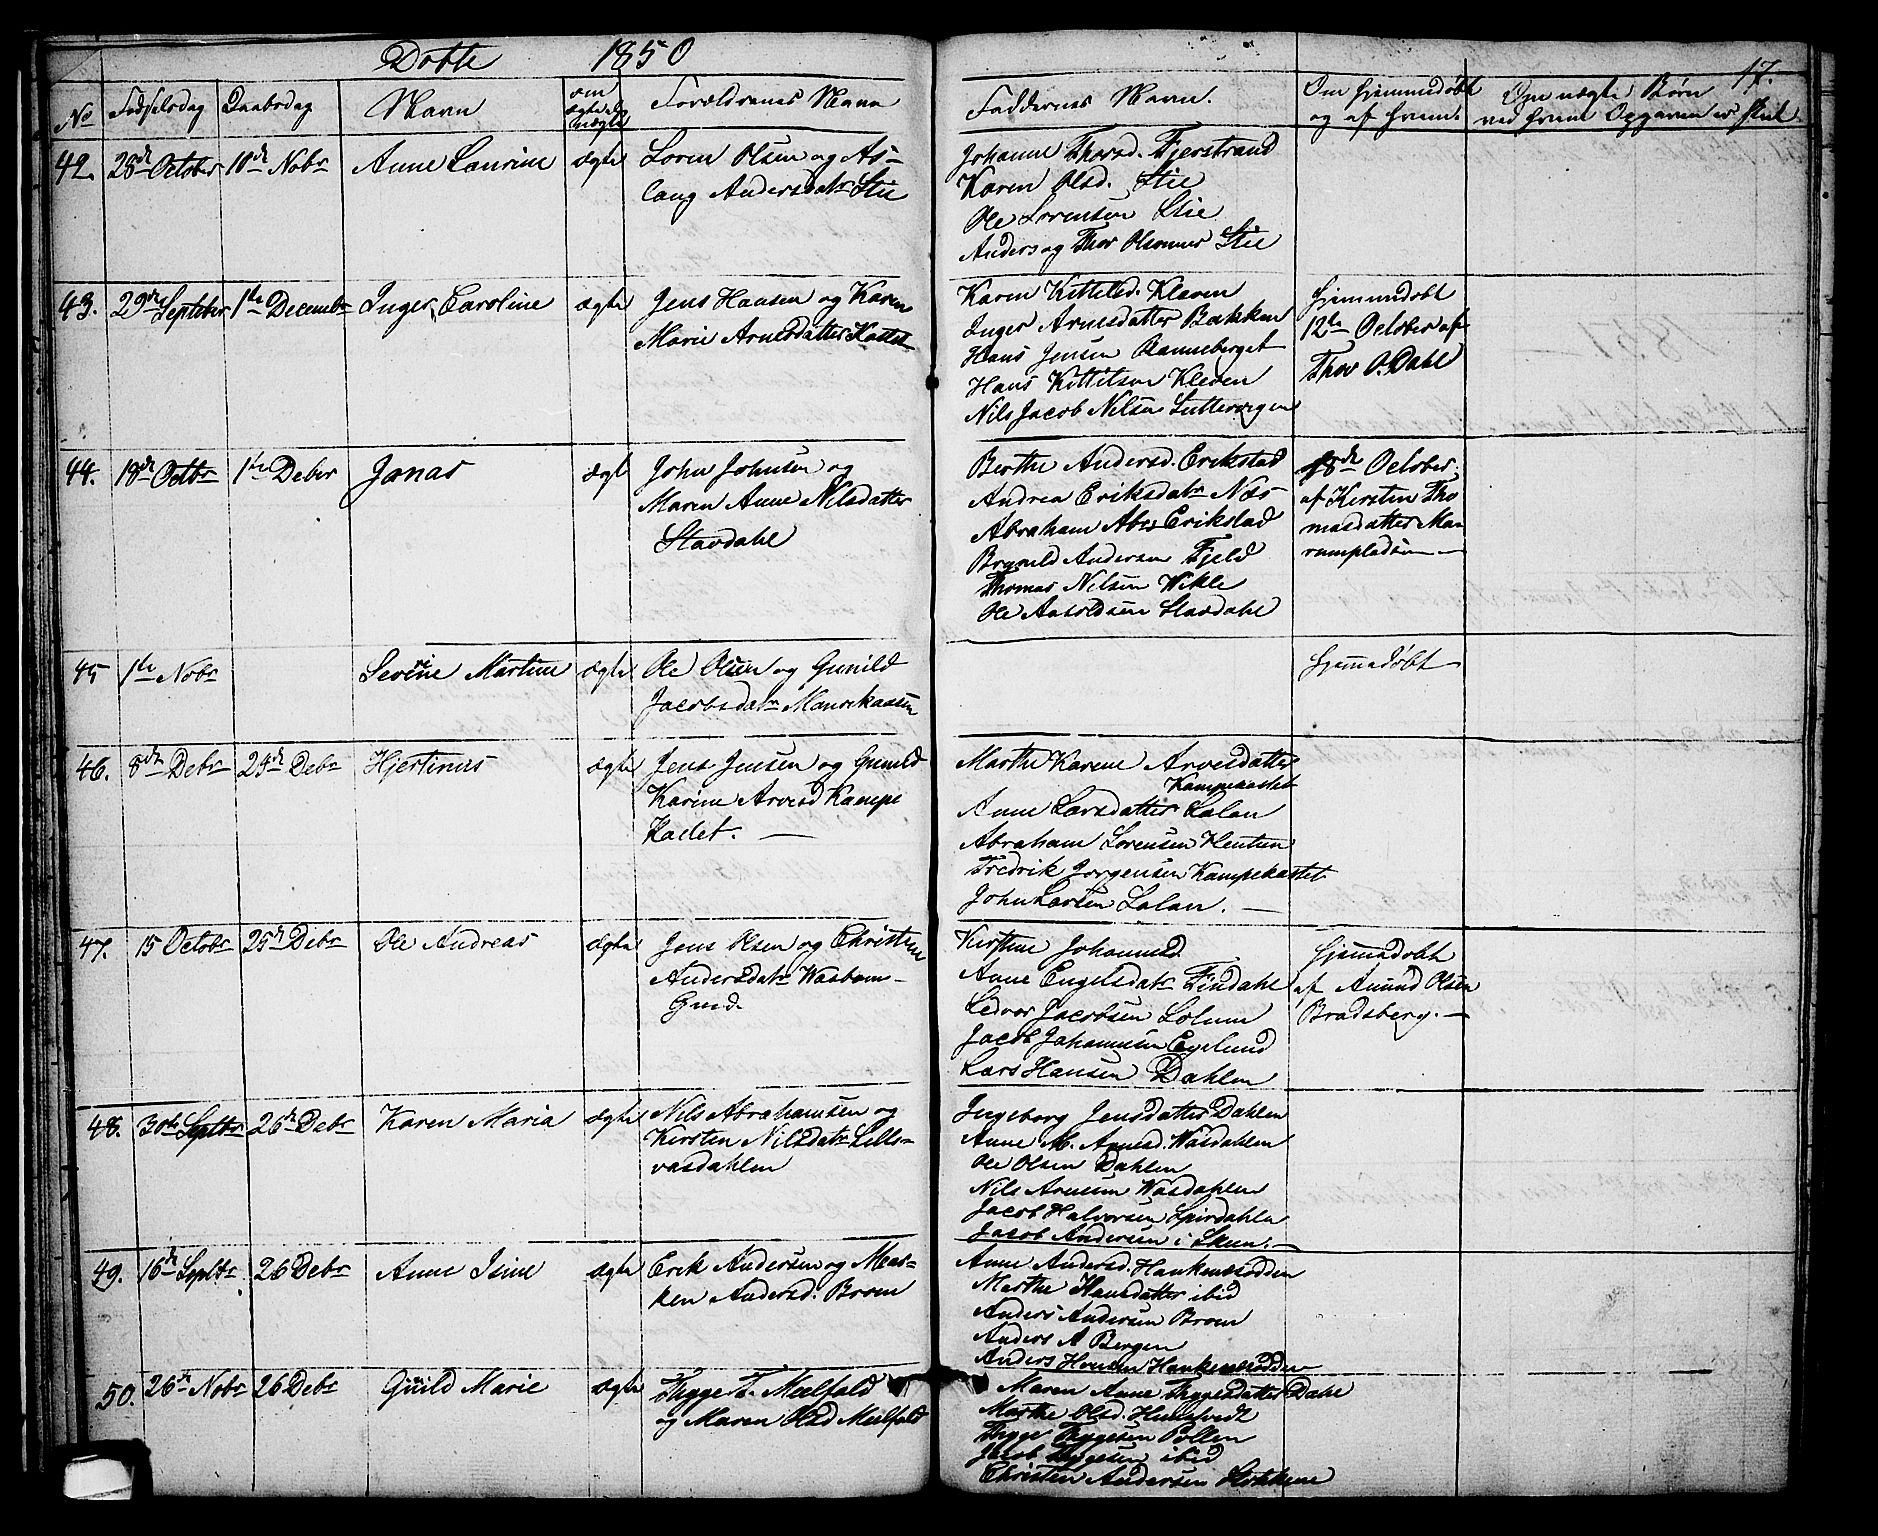 Døbte 1850
17.
No Fødselsdag Daabsdag Navn om ægte el uægte Forældrenes Navne Faddernes Navn. Om hjemmedøbt og af hvem. Om uægte Børn ved hvem Opgaven er skeet.
42. 28de October 10de Nobr Anne Laurine ægte Soren Olsen og As-
laug Andersdatr Stie
Johanne Thorsd. Fjerstrand
Karen Olsd. Stie
Ole Sorensen Stie
Anders og Thor Olsønner Stie
43. 29de Septeber 1ste Decembr Inger Caroline ægte Jens Hansen og Karen
Marie Arnesdatter
Karen Kittelsd. Kleven
Inger Arnesdatter Bakken
Hans Jensen
Hans Kittilsen Kleven
Nils Jacob Nilsen
hjemmedøbt
12te October af
Thor O. Dahl
44. 18de Octbr 1ste Deber Jonas ægte John Johnsen og
Maren Anne Nilsdatter
Stavdahl
Berthe Andersd. Erikstad
Andrea Eriksdatr Næs
Abraham Abr. Erikstad
Brynild Andersen Fjeld
Thomas Nilsen
Ole Aasoldsen Stavdahl
18de October
af Kersten Tho
masdatter
45 1ste Nobr Severine Martine ægte Ole Olsen og Gunild
Jacobsdatr
hjemedøbt
46. 8de Debr 25de Debr Hjertinus ægte Jens Jensen og Gunild
Karine Arvesd Kampe
Kastet.
Marthe Karene Arvesdatter
Kampekastet
Anne Larsdatter
Abraham Sorensen
Fredrik Jørgensen Kampekastet
John Larsen
47. 15 Octobr 25de Debr Ole Andreas ægte Jens Olsen og Christine
Andersdatr
Kirstine Johannesd.
Anne Engelsdatr Findahl
Ledvor Jacobsen Solum
Jacob Johannesen
Lars Hansen Dahlen
hjemedøbt
af Amund Olsen
Bradsberg.
48. 30te Septbr 26de Debr Karen Maria ægte Nils Abrahamsen og
Kirsten Nilsdatr Lille-
vasdahlen
Ingeborg Jensdatter Dahlen
Anne M. Arnesd. Wasdahlen
Ole Olsen Dahlen
Nils Arnesen Wasdahlen
Jacob Halvorsen
Jacob Andersen i Skeen.
49. 16de Septbr 26 Debr Anne ægte Erik Andersen og Mas-
ken Andersd. Broen
Anne Andersd. Hankenesodden
Marthe Hansdatter ibid
Anders Andersen Broen
Anders A Bergen
Anders Hansen Hankenesodden
50. 26de Nobr 26 Debr Gunild Marie ægte Thygge T. Mælfald
og Maren Olsd Mælfald
Maren Anne Thyggesdatter Dahl
Marthe Olsd.
Thygge Thygesen Bollen
Jacob Thygesen ibid
Christen Andersen